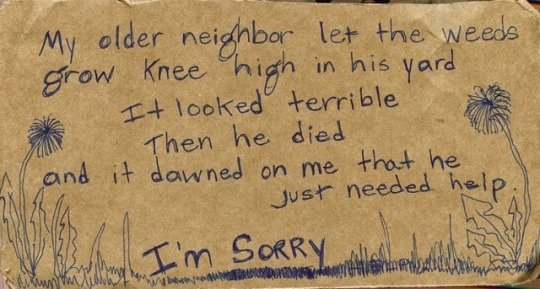 My older neighbor let the weeds
grow knee high in his yard
It looked terrible
Then he died
and it dawned on me that he
just needed help.
I'm SORRY